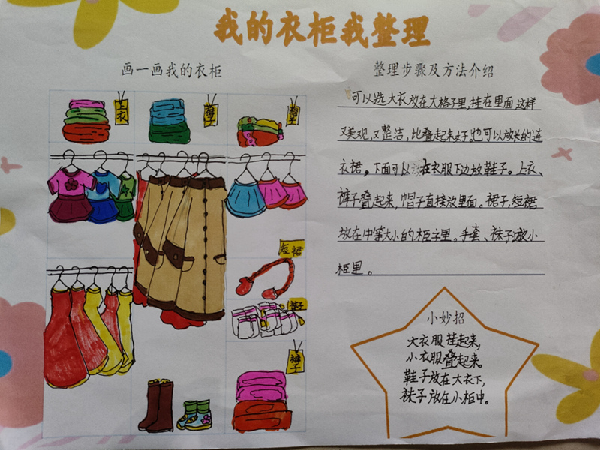 我的衣柜我整理
画一画我的衣柜
整理步骤及方法介绍
上衣
短裙
可以选大衣放在大格子里,挂在里面,这样
又美观,又整洁,比叠起来好
衣裙。下面可以在衣服下边放鞋子。上衣、
裤子叠起来,帽子直接放里面。裙子,短裙
放在中等大小的柜子里。手套、袜子放小
柜里。
小妙招
大衣服挂起来,
小衣服叠起来
鞋子放在大衣下,
袜子放在小柜中。